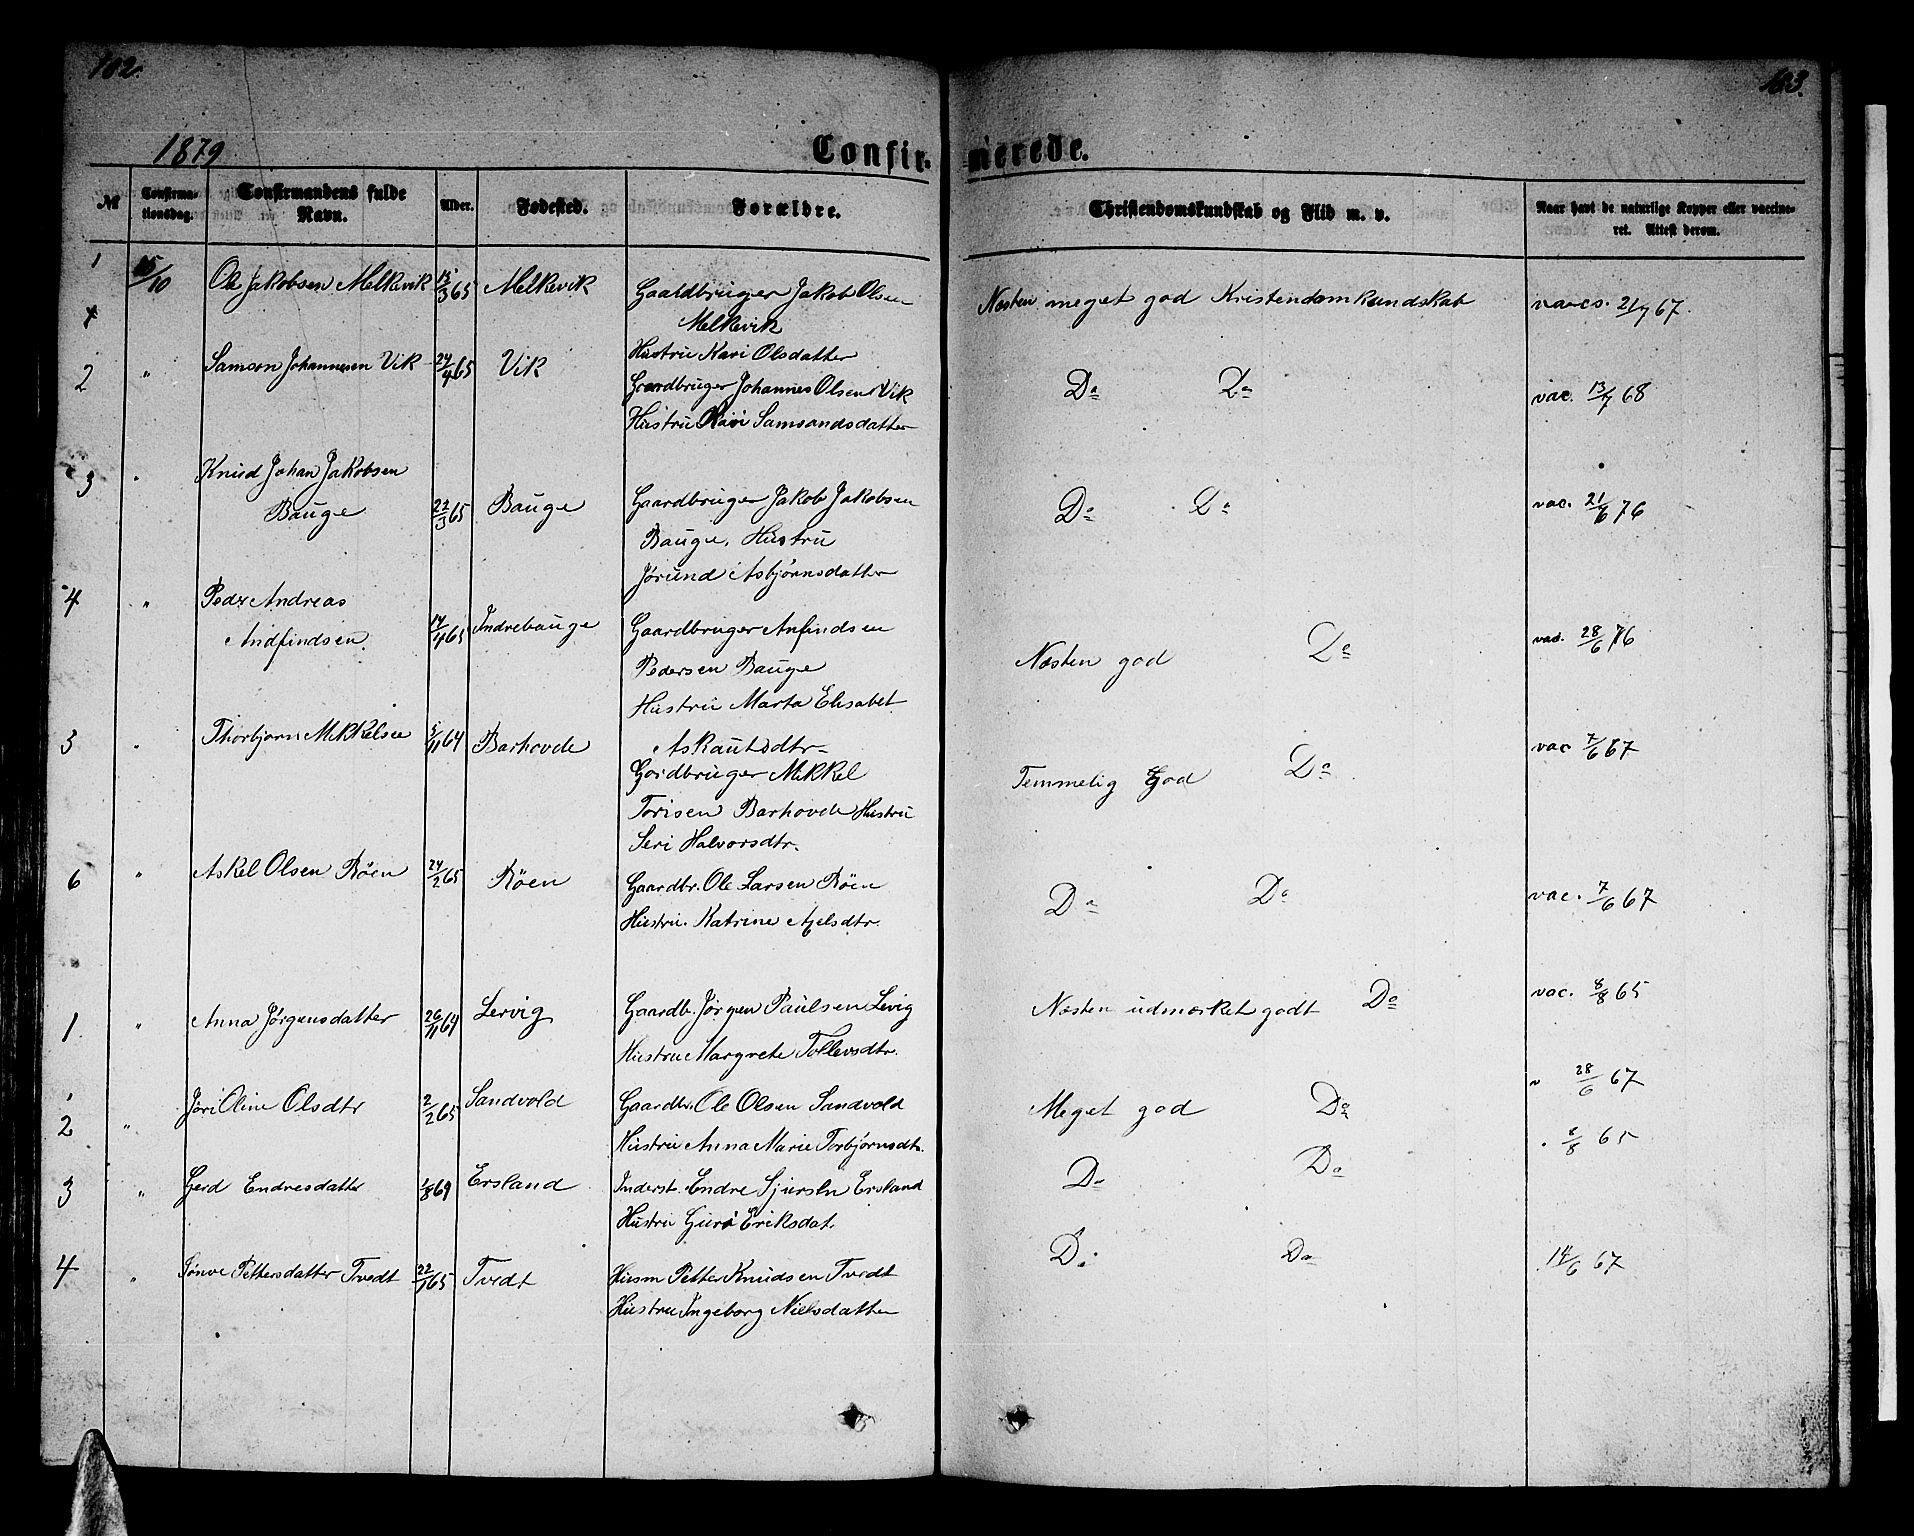 102.
103.
1879
Confir-
merede.
№
Confirma-
tionsdag.
Confirmandens fulde
Navn.
Alder.
Fødested.
Forældre.
Christendomskundskab og Flid m. v.
Naar havt de naturlige Kopper eller vaccine-
ret. Attest derom.
1 15/10 Ole Jakobsen Melkevik 15/3 65 Melkevik Gaardbruger Jakob Olsen
Melkevik
Hustru Kari Olsdatter
Næsten meget god Kristendomkundskab vacs. 21/7 67.
2 " Samson Johannesen Vik 24/4 65 Vik Gaardbruger Johannes Olsen Vik
Hustru Samsondsdatter
Do Do vac. 13/7 68
3 " Knud Johan Jakobsen
Bauge 22/3 65 Bauge Gaardbruger Jakob Jakobsen
Bauge, Hustru
Jørund Asbjørnsdatter
Do Do vac. 21/6 76
4 " Peder Andreas
Andfindsen 14/4 65 Indrebauge Gaardbruger Anfindsen
Pedersen Bauge
Hustru Marta Elisabet
Askautsdtr
Næsten god Do vac. 28/6 76
" Thorbjørn Mikkelsen 5/11 64 Barhovde
Gordbruger Mikkel
Torisen Barhovde Hustru
Seri Halvorsdtr.
Temmelig God Do vac 7/6 67
6 " Askel Olsen Røen 24/2 65 Røen Gaardbr. Ole Larsen Røen
Hustru. Katrine
Do Do vac. 7/6 67
1 " Anna Jørgensdatter 26/11 64 Lervig Gaardb. Jørgen Paulsen Levig
Hustru Margrete Tollevsdtr.
Næsten udmærket godt Do vac. 8/8 65
2 " Jøri Oline Olsdtr 2/2 65 Sandvold Gaardbr. Ole Olsen Sandvold
Hustru Anna Marie Torbjørnsdtr.
Meget god Do v 28/6 67
3 " Gerd Endresdatter 1/8 69 Ersland Inderst. Endre Sjursen Ersland
Hustru Guro Eriksdat.
Do Do 65
4 " Jønve Pettersdatter Tvedt 22/1 65 Tvedt Husm Petter Knudsen Tvedt
Hustru Ingeborg Nielsdatter
Do Do 14/6 67